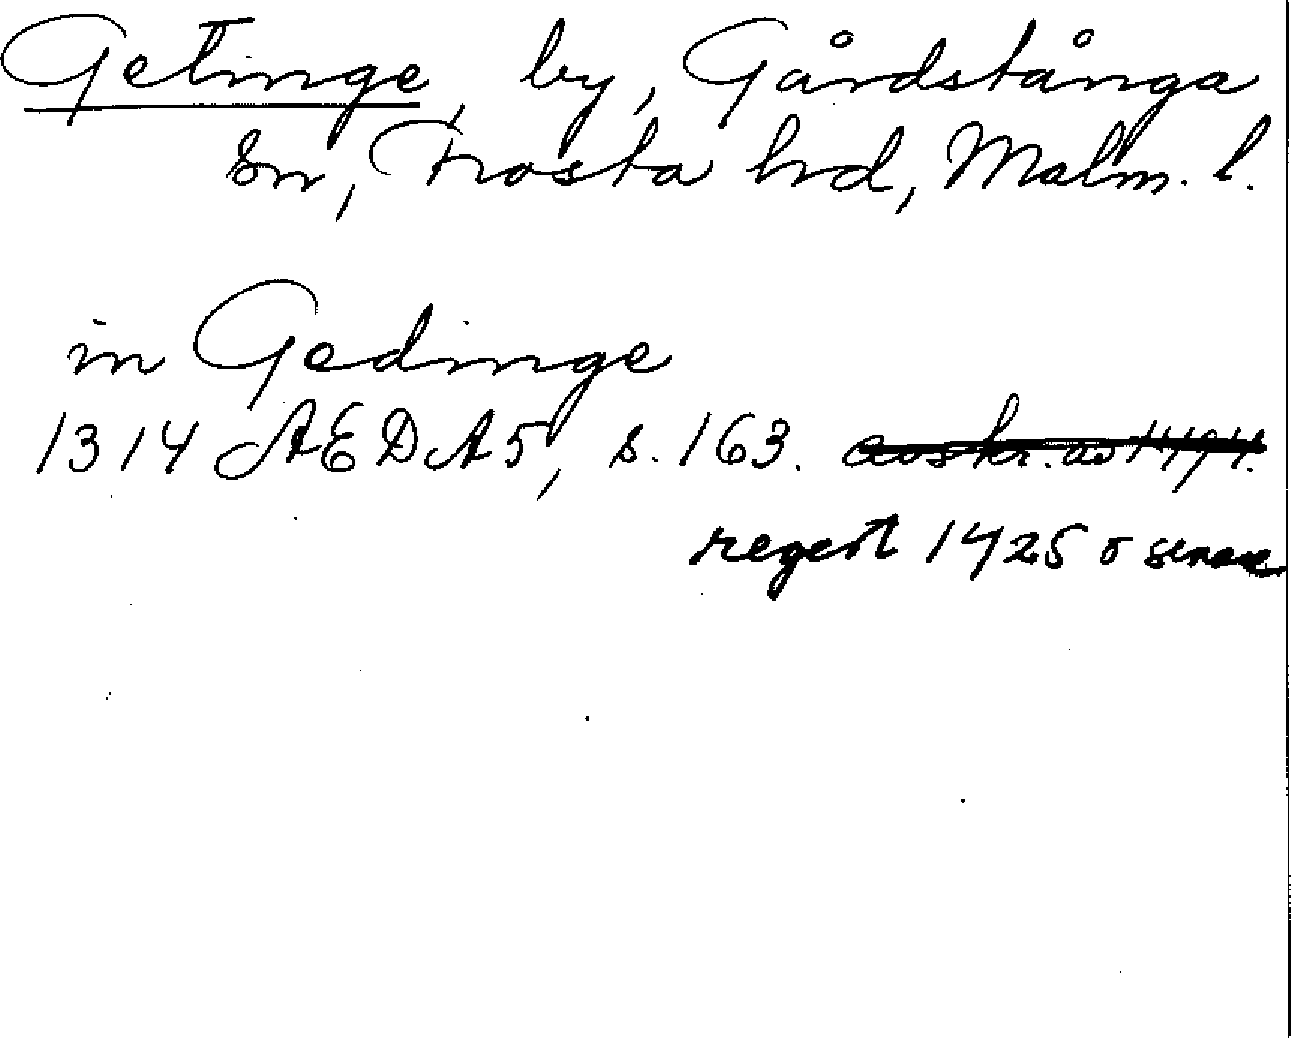 Getinge, by, Gårdstånga
sn, Frosta hd, Malm. l.
in Gedinge
1314 ÆDA5, s. 163. avskr. av 1494.
regest 1425 o senare